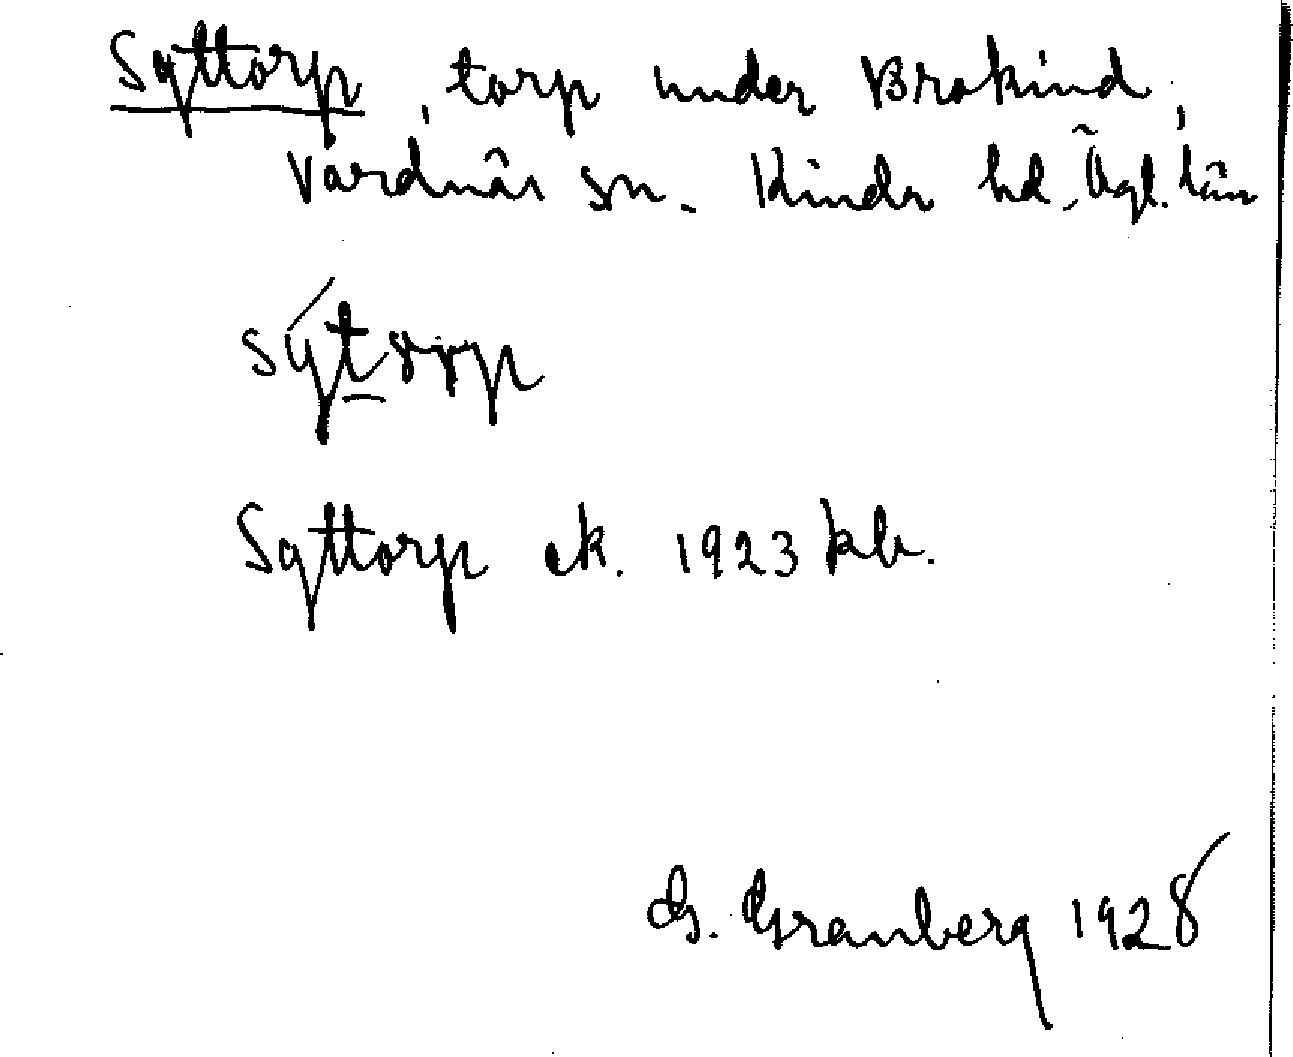 Syttorp, torp under Brokind,
Vårdnäs sn. Kinds hd, Ögl. län
Syttorp ek. 1923 kb.
G. Granberg 1928